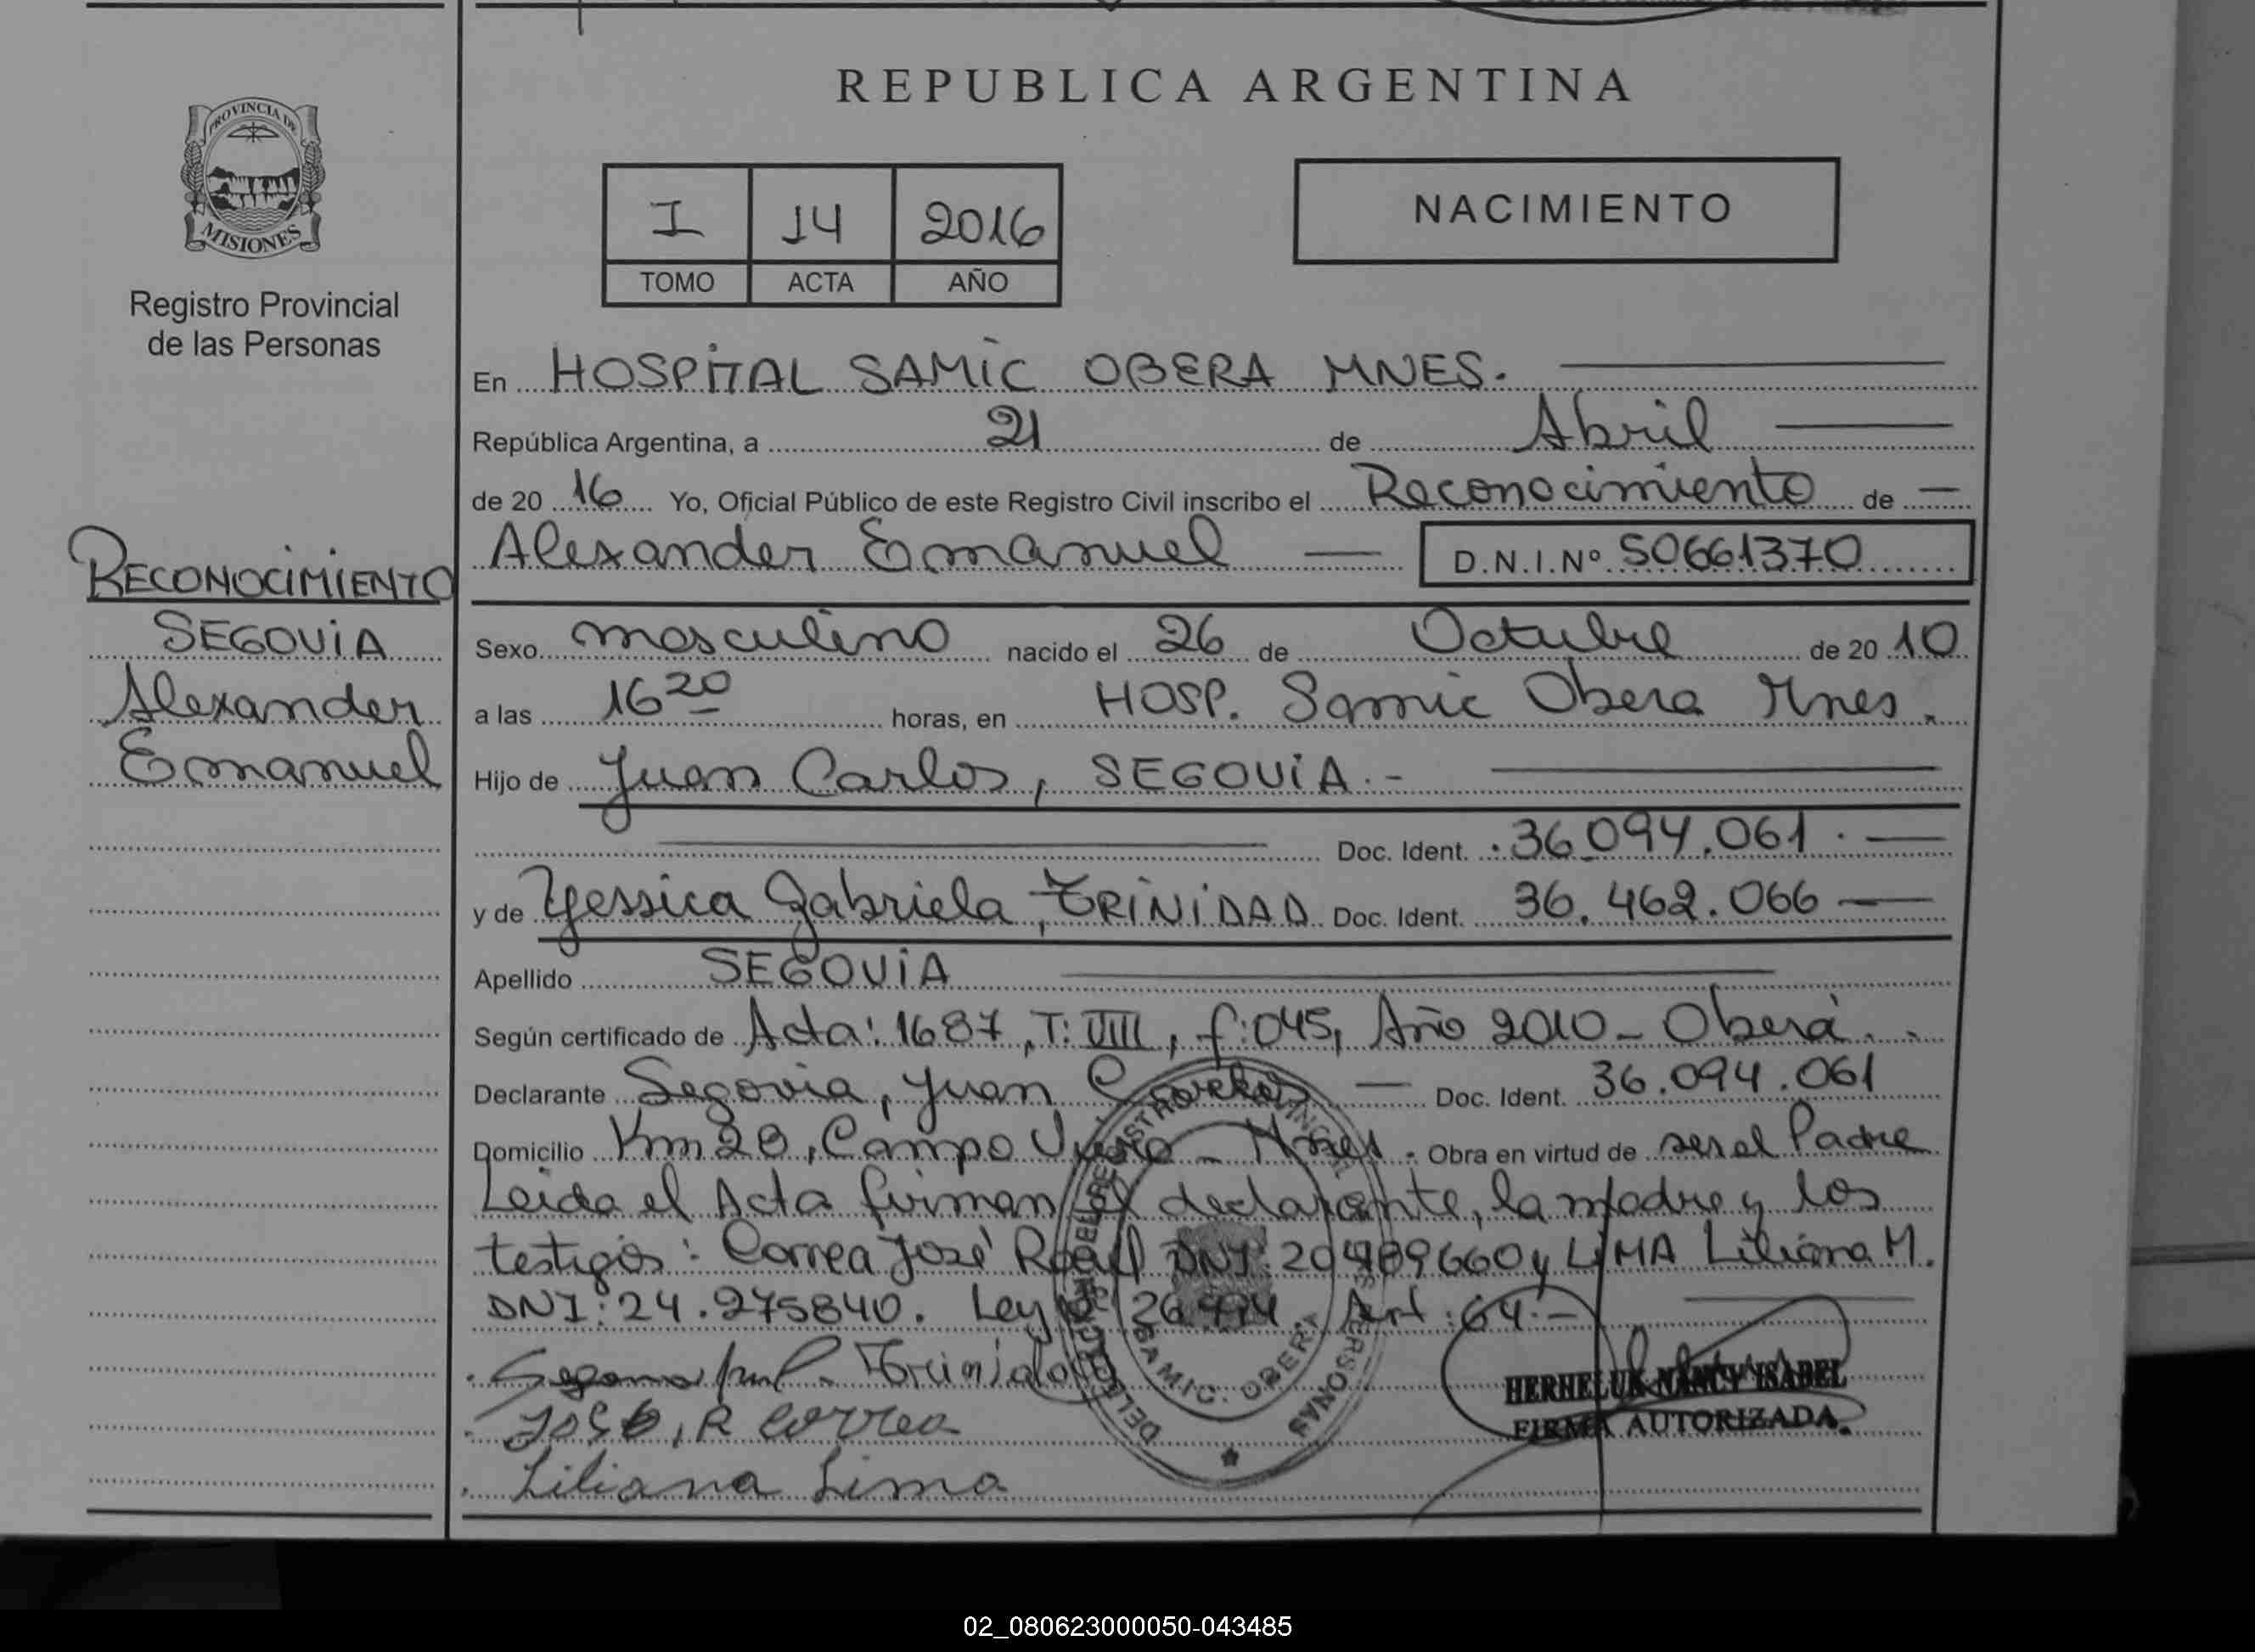 REPUBLICA ARGENTINA
PROVINCIA DE
MISIONES
Registro Provincial
de las Personas
I 14 2016
TOMO ACTA AÑO
NACIMIENTO
En HOSPITAL SAMIC OBERA MNES.
República Argentina, a 21 de Abril
de 20 16 Yo, Oficial Público de este Registro Civil inscribo el Reconocimiento de
Alexander Emanuel D.N.I.Nº 50661370
RECONOCIMIENTO
SEGOVIA
Alexander
Emanuel
Sexo masculino nacido el 26 de Octubre de 20 10
a las 16 20 horas, en HOSP. Samic Obera Mnes.
Hijo de Juan Carlos, SEGOVIA.-
Doc. Ident. 36.094.061.
y de Yessica Gabriela, TRINIDAD Doc. Ident. 36.462.066
Apellido SEGOVIA
Según certificado de Acta: 1687, T: VIII, f: 045, Año 2010 - Oberá.
Declarante Segovia, Juan Carlos Doc. Ident. 36.094.061
Domicilio Km 28, Campo Viera - Mnes. Obra en virtud de ser el Padre
Leida el Acta firman el declarante, la madre y los
testigos: Correa José DNI: y LIMA Liliana M.
DNI: 24.275840. Ley Art: 64.-
Segovia Trinidad
José, R Correa
Liliana Lima
SAMIC. OBERA
HERHELUK NANCY ISABEL
FIRMA AUTORIZADA
02_080623000050-043485